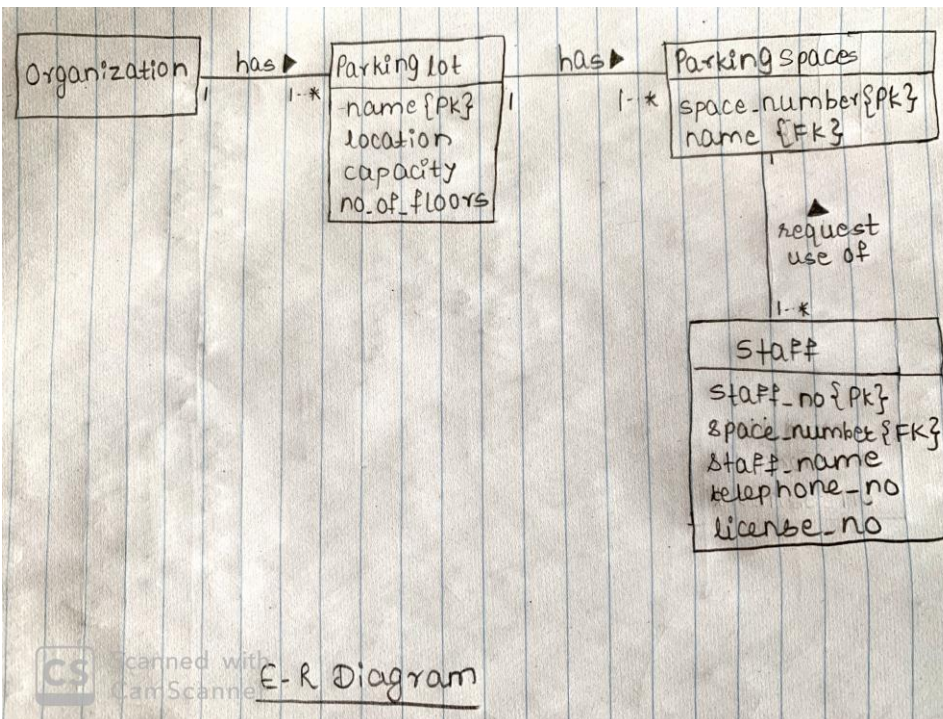 Organization
has ▶
1
1..*
Parking lot
name {PK}
location
capacity
no_of_floors
has ▶
1
1..*
Parking spaces
space_number {PK}
name {FK}
1
▲
request
use of
1..*
Staff
staff_no {PK}
space_number {FK}
staff_name
telephone_no
license_no
CS Scanned with
CamScanner
E-R Diagram